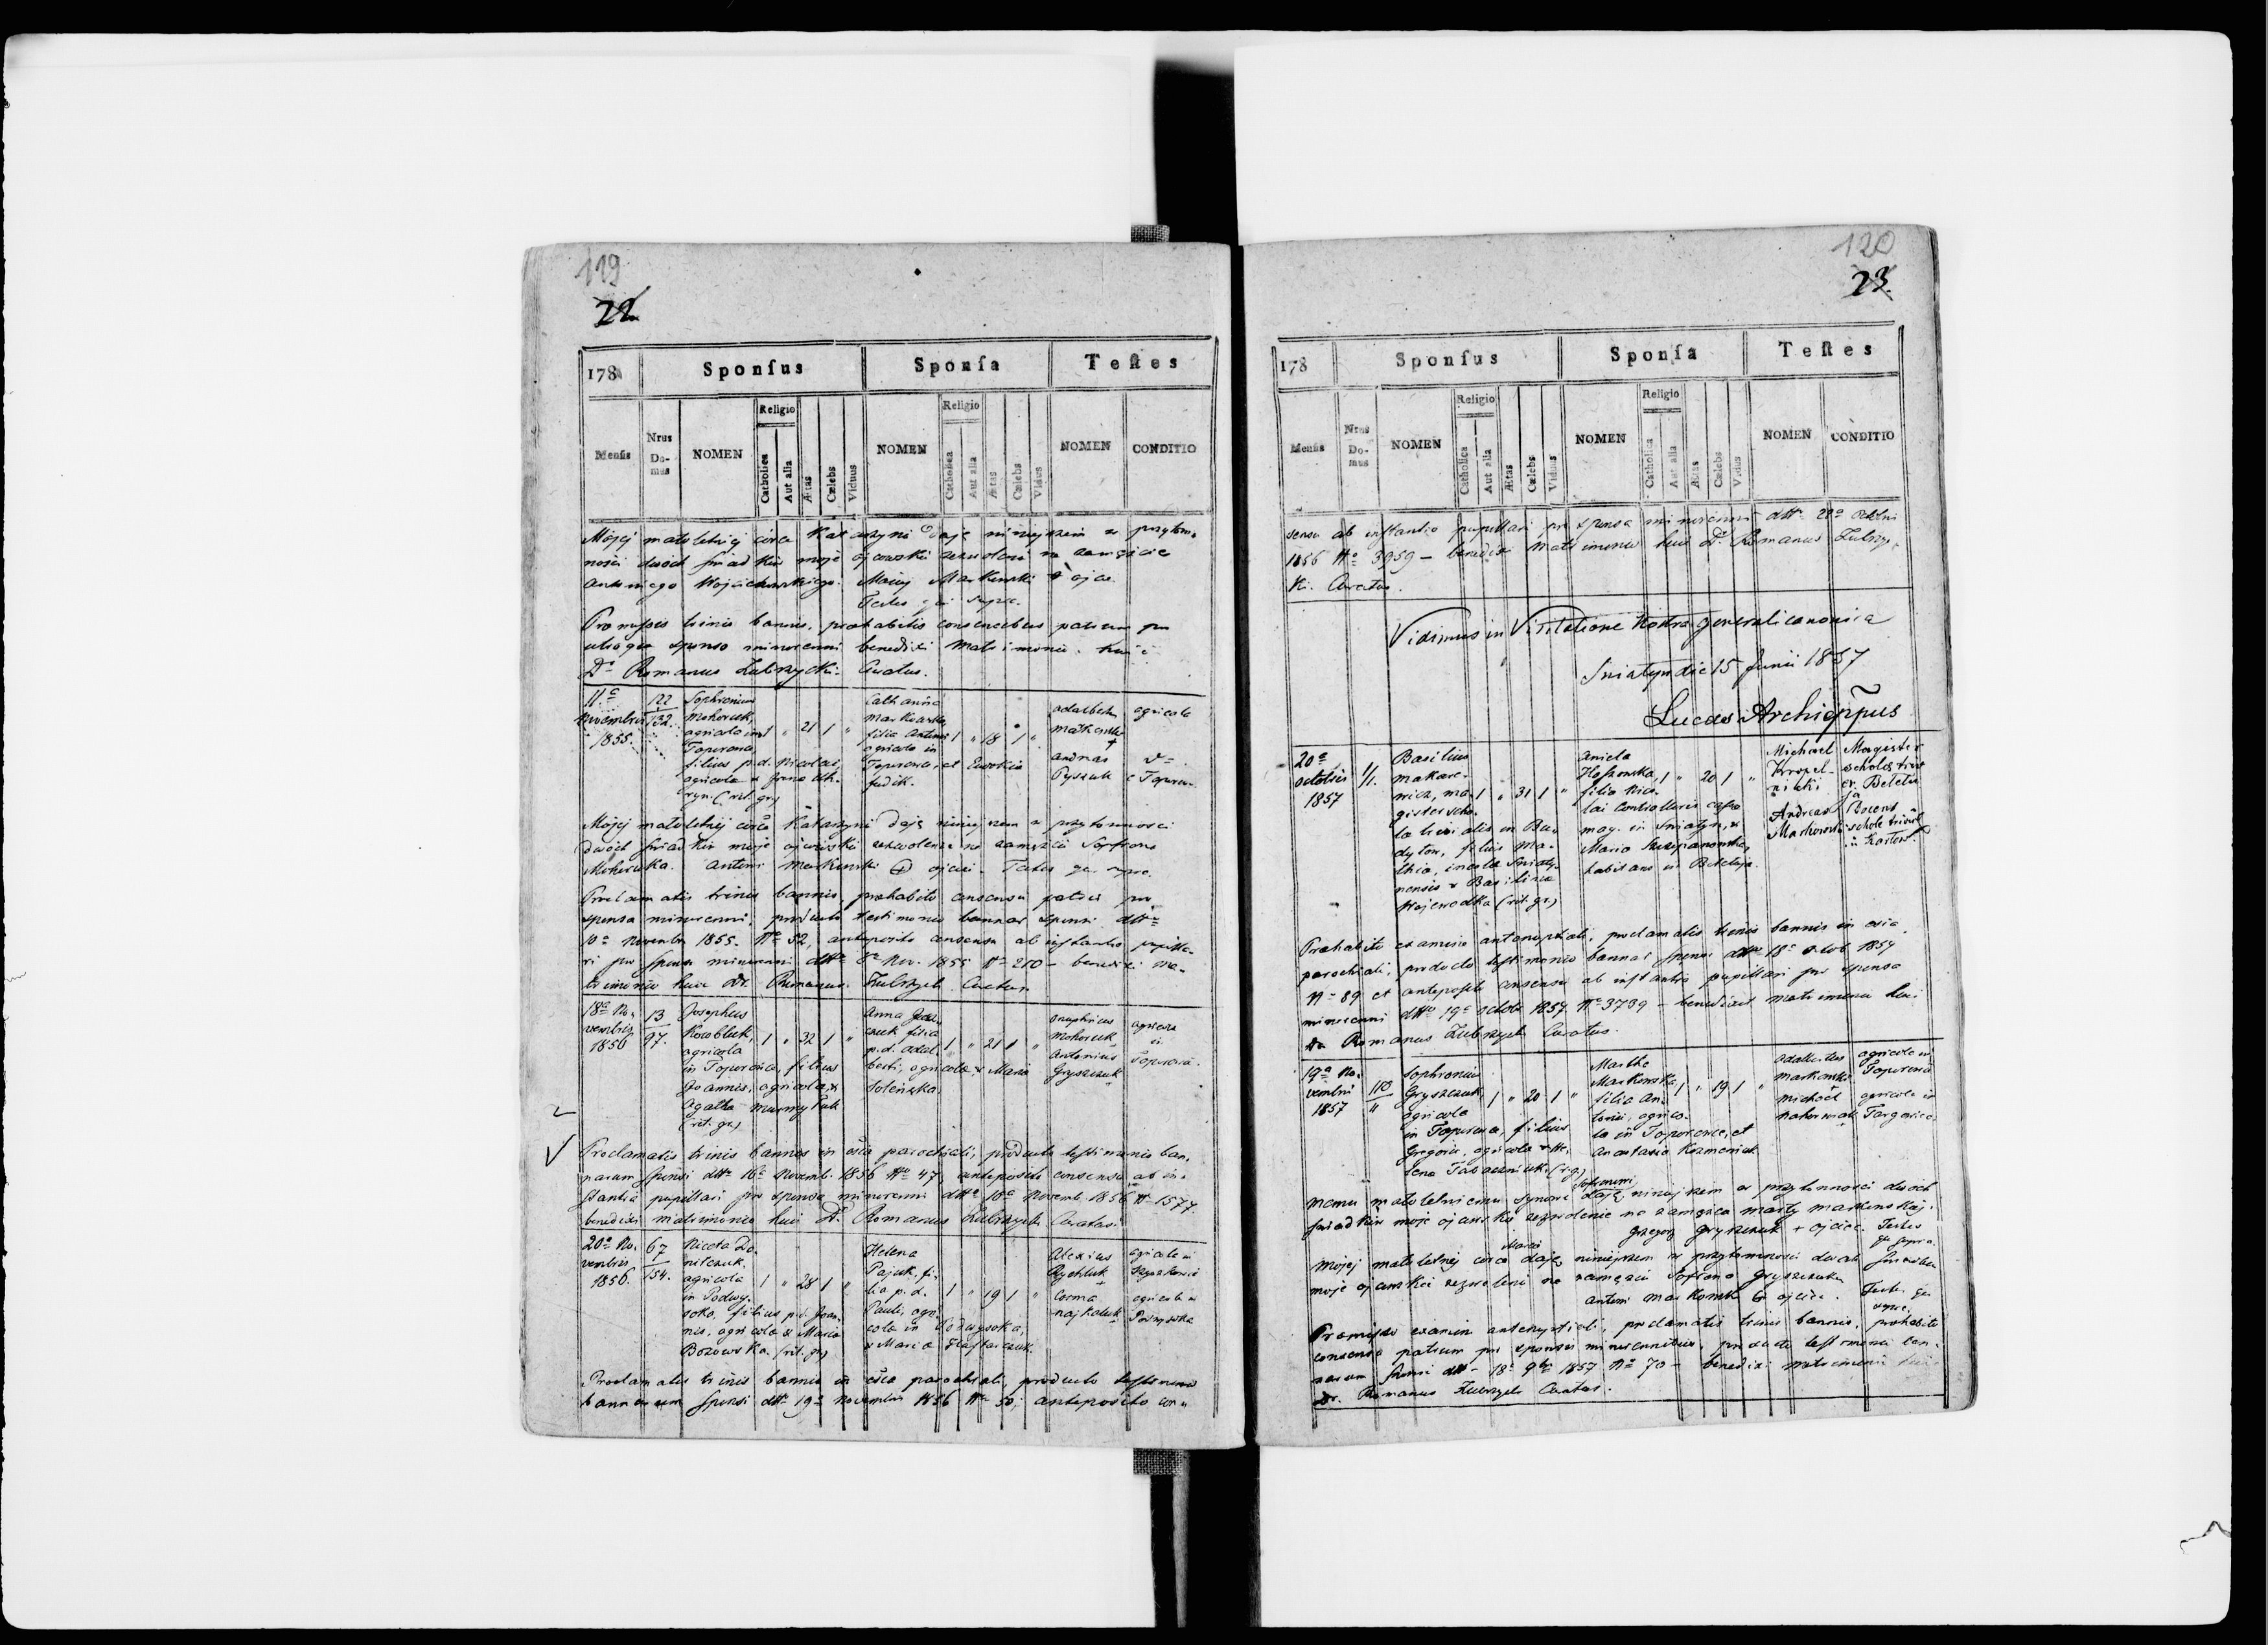 119
22
178
Sponſus
Sponſa
Teſtes
Menſis
Nrus Do-mus
NOMEN
Religio
Catholica
Aut alia
Ætas
Cœlebs
Viduus
NOMEN
Religio
Catholica
Aut alia
Ætas
Cœlebs
Vidua
NOMEN
CONDITIO
Mojej małoletniej córce Katarzynie daję niniejszem w przytom-
ności dwóch świadków moje ojcowskie zezwolenie na zamęście
Antoniego Wojciechowskiego. Maciej Markowski + ojciec
Testes qui supra.
Promissis trinis bannis, prohabitis consensibus patrum pro
utroque sponso minorenni benedixi matrimonio huic
Dr Romanus Zubrzycki Curatus.
11a Novembris 1855.
122
132.
Sophronius
Mohoruk,
agricola in
Toporowce,
filius p.d. Nicolai,
agricola &
(rit. gr.)
1 " 21 1 "
Catharina
Markowska,
filia Antonii
agricola in
Toporowce, et Eudokia
1 " 18 1 "
Adalbertus
Markowski
+
Andreas
Pyszuk
agricola
Mojej małoletniej córce Katarzynie daję niniejszem w przytomności
dwóch świadków moje ojcowskie zezwolenie na zamęście Sofrona
Mohoruka. Antoni Markowski + ojciec. Testes qui supra.
Proclamatis trinis bannis, prohabito consensu patris pro
sponsa minorenni, producto testimonio bannor sponsi dtto
10a Novembr 1855. No 52, anteposito consensu ab instantia pupilla-
ri pro sponso minorenni dtto 8a Nov. 1855 No 210 – benedixi ma-
trimonio huic Dr. Romanus Zubrzycki Curatus
18a No-
vembris
1856
13
97.
Josephus
Kowbluk,
agricola
in Toporowce, filius
Joannis, agricola, &
Agatha
(rit. gr.)
1 " 32 1 "
Anna
filia
p.d. Adal-
berti, agricola & Maria
Soleńska.
1 " 21 1 "
Onuphrius
Mohoruk
Antonius
Gryszczuk
agricola
in
Toporowce.
Proclamatis trinis bannis in ecclia parochiali, producto testimonio ban-
narum sponsi dtto 16a Novemb. 1856 No 47, anteposito consensu ab in-
stantia pupillari pro sponsa minorenni dtto 18a Novemb. 1856 No 1577.
benedixi matrimonio huic Dr. Romanus Zubrzycki Curatus.
20a No-
vembris
1856.
67
154.
Niceta Da-
nilczuk,
agricola
in Podwy-
soka, filius p.d. Joan-
nis, agricola & Maria
Bozowska. (rit. gr.)
1 " 28 1 "
Helena
Pajuk, fi-
lia p.d.
Pauli, agri-
cola in Podwysoka,
& Maria
1 " 19 1 "
Alexius
Rychluk
+
Cosma
agricola in
agricola in
Podwysoka
Proclamatis trinis bannis in ecclia parochiali, producto testimonio
bannarum sponsi dtto 19a Novembris 1856 No 50, anteposito con-
120
23.
178
Sponſus
Sponſa
Teſtes
Menſis
Nrus Do-mus
NOMEN
Religio
Catholica
Aut alia
Ætas
Cœlebs
Viduus
NOMEN
Religio
Catholica
Aut alia
Ætas
Cœlebs
Vidua
NOMEN
CONDITIO
sensu ab instantia pupillari pro sponsa minorenni dtto 20a
1856 No 3959 – benedixi matrimonio huic Dr Romanus Zubrzyc-
ki. Curatus.
Vidimus in Visitatione Nostra generali canonica
Sniatyn die 15 Junii 1857
Lucas Archieppus
20a
octobris
1857
1/1.
Basilius
Makare-
wicz, ma-
gister scho-
la trivialis in
filius Ma-
thia, incola Sniaty-
nensis & Basilina
Wojewodka (rit. gr.)
1 " 31 1 "
Aniela
filia Nico-
lai Controlloris
mag. in Sniatyn, &
Maria
habitans in Bełełuja.
1 " 20 1 "
Michael
Andreas
Markowski
Magister
schola triv.
in Bełełuja
Docens
schola trivial
in
Prohabito examine antenuptiali, proclamatis trinis bannis in ecclia
parochiali, producto testimonio bannar sponsi dtto 18a octob. 1857
No 89 et anteposito consensu ab instantia pupillari pro sponsa
minorenni dtto 19a octobr 1857. No 3739 – benedixi matrimonio huic
Dr Romanus Zubrzycki Curatus.
19a No-
vembris
1857
110
"
Sophronius
Gryszczuk
agricola
in Toporowce, filius
Gregorii, agricola & He-
lena Tabaczniuk (r.g.)
1 " 20 1 "
Martha
Markowska,
filia An-
tonii, agrico-
la in Toporowce, et
Anastasia Kozmeniuk
1 " 19 1 "
Adalbertus
Markowski
+
Michael
agricola in
Toporowce
agricola in
Memu małoletniemu synowi Sofronowi daję niniejszem w przytomności dwóch
świadków moje ojcowskie zezwolenie na zamęście Marty Markowskiej.
Grzegorz Gryszczuk + ojciec. Testes
qui supra.
Mojej małoletniej córce Marcie daję niniejszem w przytomności dwóch świadków
moje ojcowskie zezwolenie na zamęście Sofrona Gryszczuka
Antoni Markowski + ojciec. Testes qui
supra.
Promisso examine antenuptiali, proclamatis trinis bannis, prohabito
consensu patrum pro sponsis minorennibus, producto testimonio ban-
narum sponsi dtto 18a 9bris 1857 No 70 – benedixi matrimonio huic
Dr. Romanus Zubrzycki Curatus.